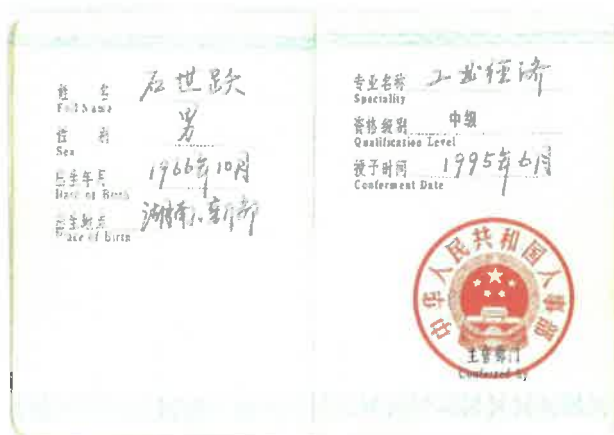 姓 名 石世跃
Full Name
性 别 男
Sex
出生年月 1966年10月
Date of Birth
出生地点 湖南
Place of Birth
专业名称 工业经济
Speciality
资格级别 中级
Qualification Level
授予时间 1995年6月
Conferment Date
中华人民共和国人事部
主管部门
Conferred by